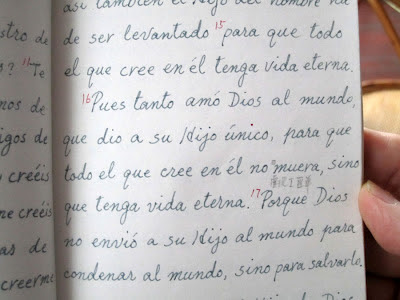 stro de
? ¹¹Te
mos de
igos de
creéis
me creéis
as de
creerme
así también el Hijo del hombre ha
de ser levantado ¹⁵para que todo
el que cree en él tenga vida eterna.
¹⁶Pues tanto amó Dios al mundo,
que dio a su Hijo único, para que
todo el que cree en él no muera, sino
que tenga vida eterna. ¹⁷Porque Dios
no envió a su Hijo al mundo para
condenar al mundo, sino para salvarlo.